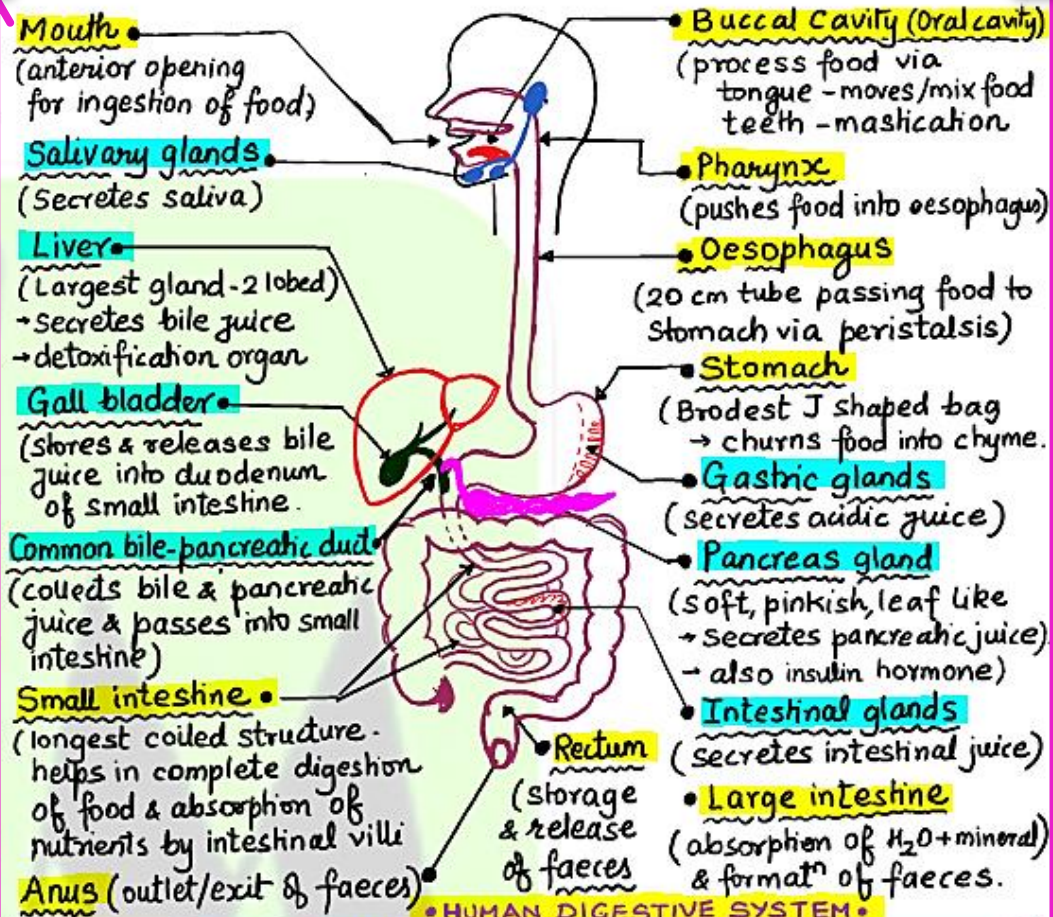 Mouth
(anterior opening
for ingestion of food)
Salivary glands
(Secretes saliva)
Liver
(Largest gland-2 lobed)
→secretes bile juice
→detoxification organ
Gall bladder
(stores & releases bile
juice into duodenum
of small intestine.
Common bile-pancreatic duct
(collects bile & pancreatic
juice & passes into small
intestine)
Small intestine
(longest coiled structure.
helps in complete digestion
of food & absorption of
nutrients by intestinal villi
Anus (outlet/exit of faeces)
Buccal Cavity (Oral cavity)
(process food via
tongue -moves/mix food
teeth -mastication
Pharynx
(pushes food into oesophagus)
Oesophagus
(20 cm tube passing food to
Stomach via peristalsis)
Stomach
(Brodest J shaped bag
→ churns food into chyme.
Gastric glands
(secretes acidic juice)
Pancreas gland
(soft, pinkish, leaf like
→ secretes pancreatic juice)
→ also insulin hormone)
Intestinal glands
(secretes intestinal juice)
Rectum
(storage
& release
of faeces
Large intestine
(absorption of H₂O+mineral)
& formatⁿ of faeces.
•HUMAN DIGESTIVE SYSTEM•